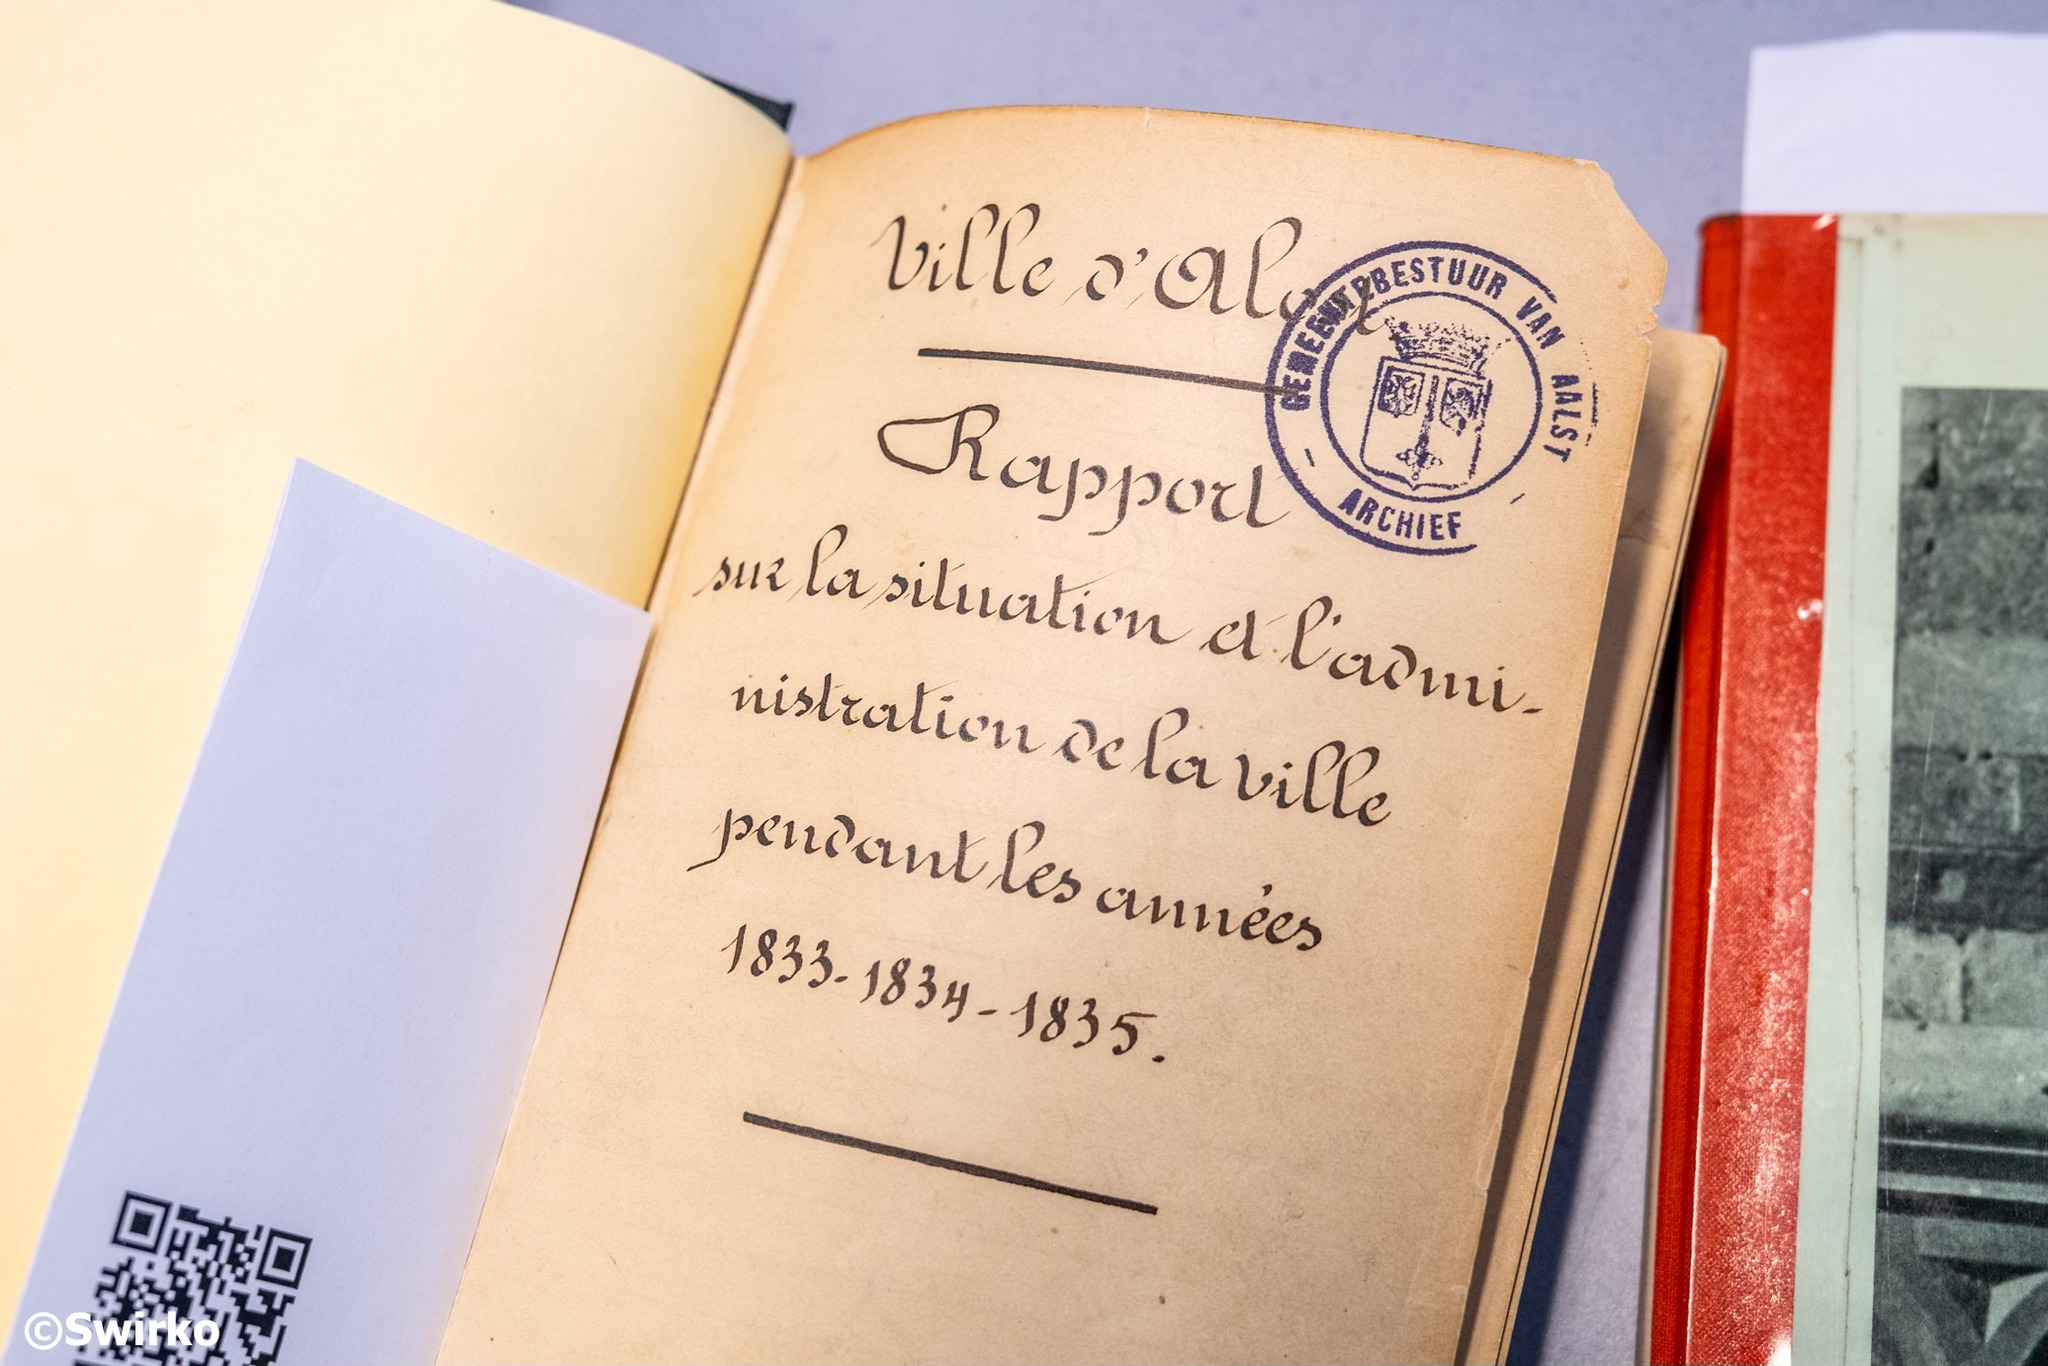 Ville d'Alost
Rapport
sur la situation et l'admi-
nistration de la ville
pendant les années
1833-1834-1835.
GEMEENTEBESTUUR VAN AALST
- ARCHIEF -
©Swirko